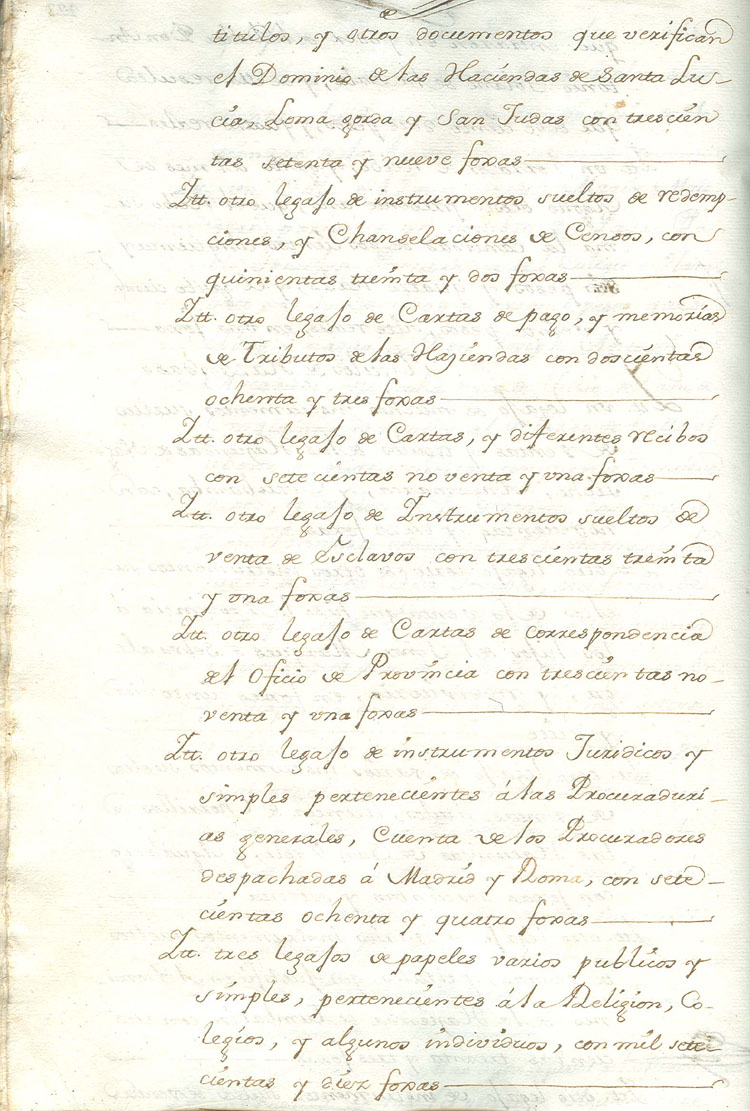 titulos, y otros documentos que verifican
el Dominio de las Haciendas de Santa Lu-
cia, Loma gorda y San Judas con trescien
tas setenta y nueve foxas
Itt. otro legajo de instrumentos sueltos de redemp-
ciones, y Chanselaciones de Censos, con
quinientas treinta y dos foxas
Itt. otro legajo de Cartas de pago, y memorias
de Tributos de las Haziendas con doscientas
ochenta y tres foxas
Itt. otro legajo de Cartas, y diferentes recibos
con setecientas noventa y una foxas
Itt. otro legajo de Instrumentos sueltos de
venta de Esclavos con trescientas treinta
y una foxas
Itt. otro legajo de Cartas de correspondencia
del Oficio de Provincia con trescientas no-
venta y una foxas
Itt. otro legajo de instrumentos Juridicos y
simples pertenecientes á las Procuraduri-
as generales, Cuenta de los Procuradores
despachadas á Madrid y Roma, con sete-
cientas ochenta y quatro foxas
Itt. tres legajos de papeles varios publicos y
simples, pertenecientes á la Religion, Co-
legios, y algunos individuos, con mil sete-
cientas y diez foxas